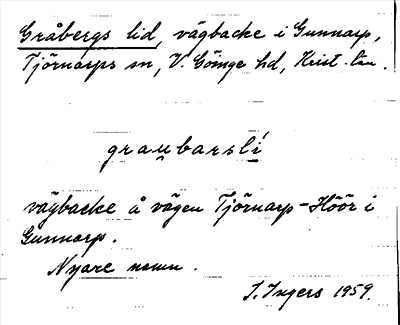 Gråbergs lid, vägbacke i Gunnarp,
Tjörnarps sn, V. Göinge hd, Krist. län.
grau̯barslí
vägbacke å vägen Tjörnarp–Höör i
Gunnarp.
Nyare namn.
I. Ingers 1959.